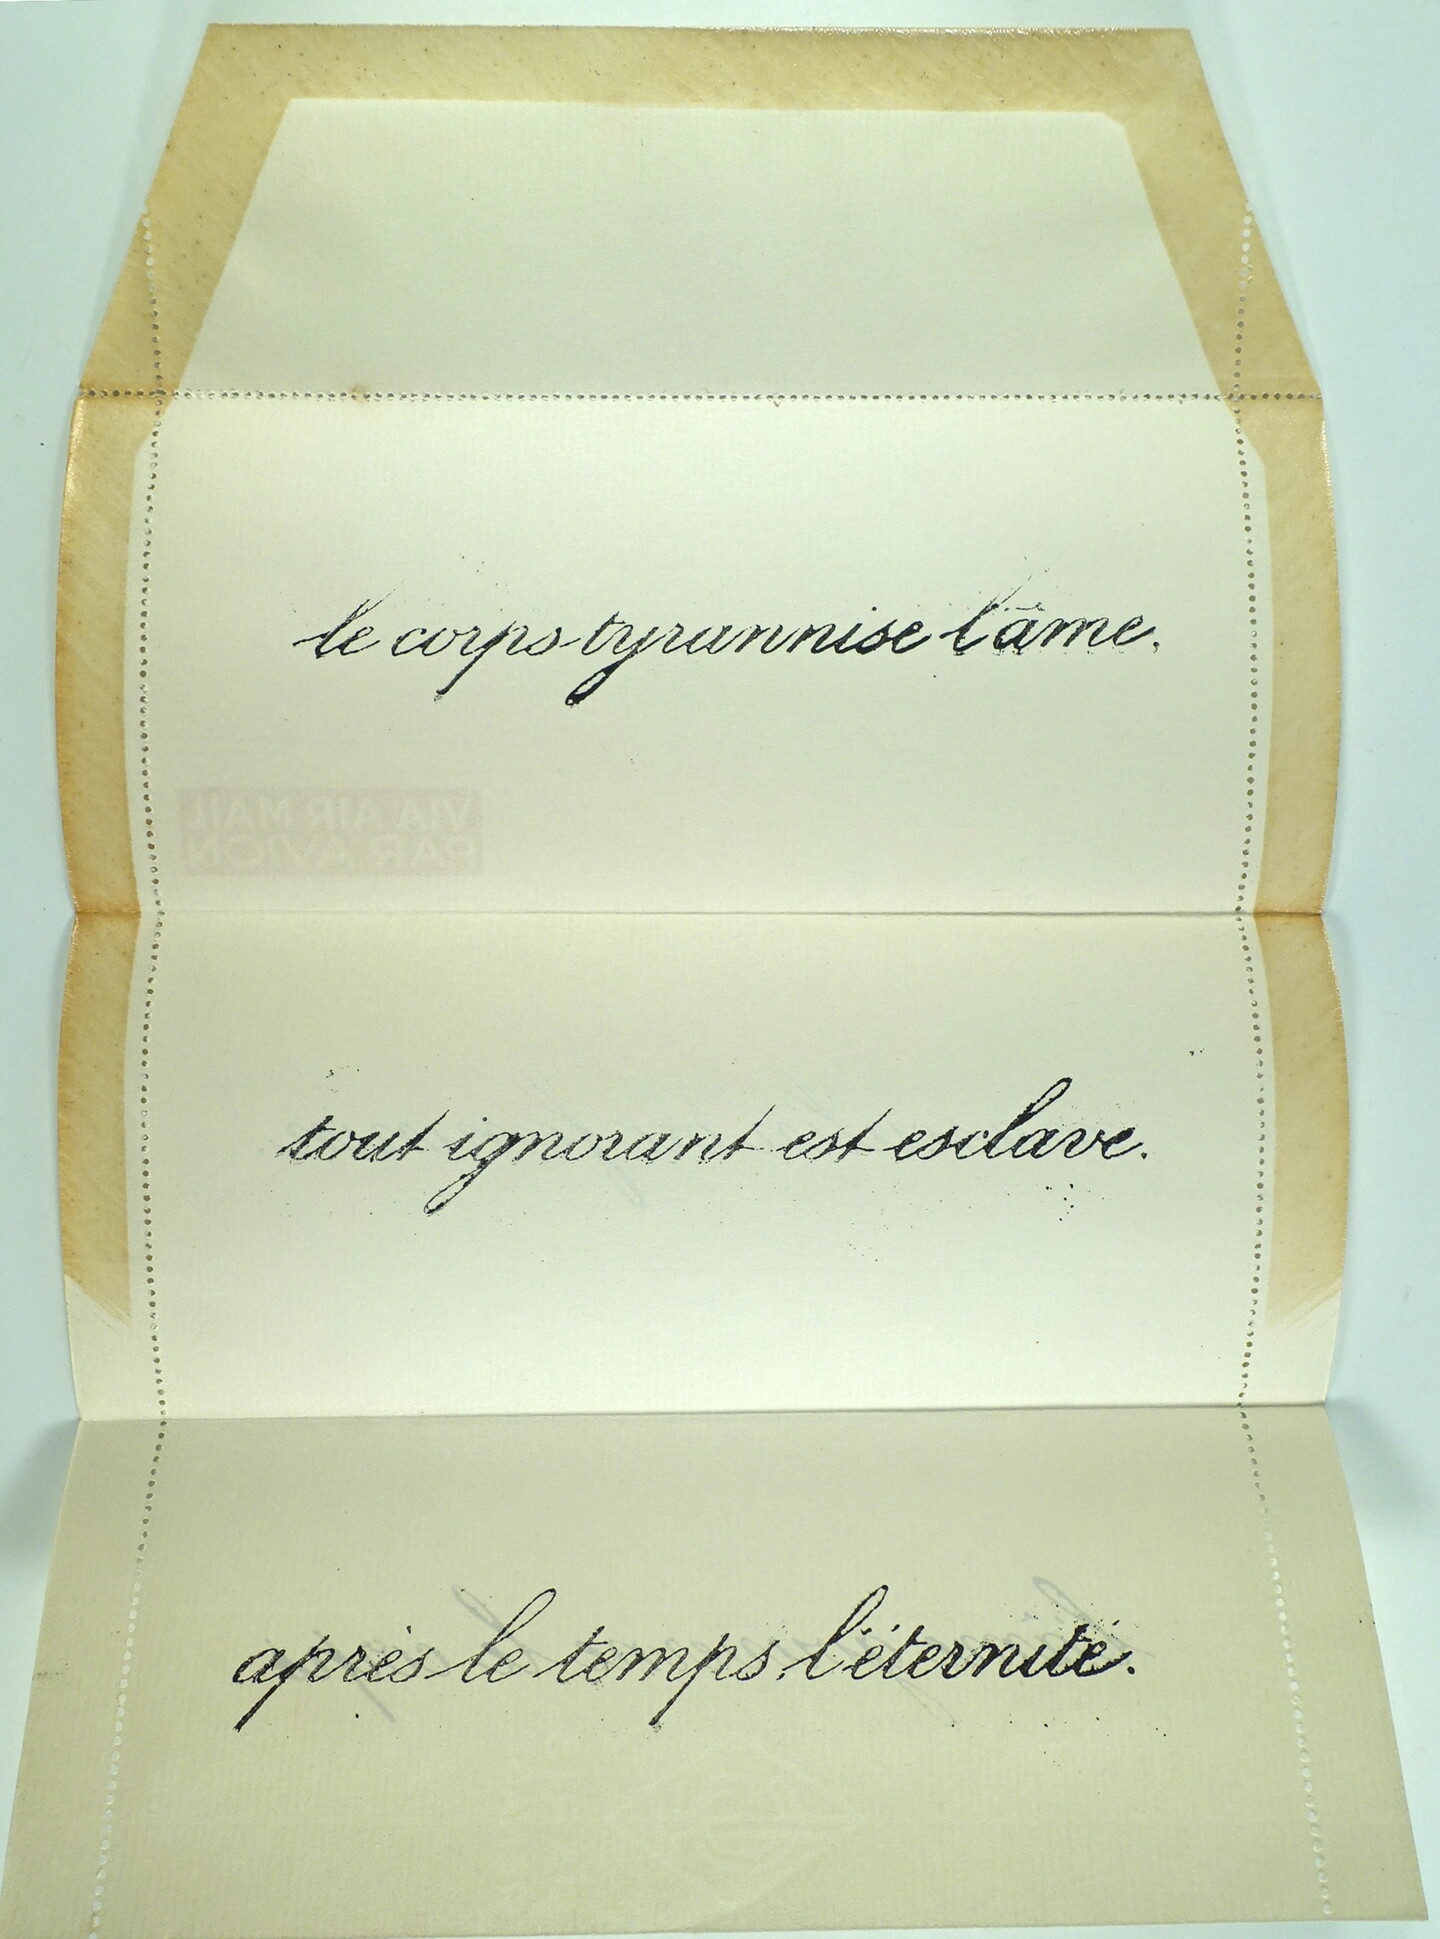 le corps tyrannise l'âme.
VIA AIR MAIL
PAR AVION
tout ignorant est esclave.
après le temps, l'éternité.